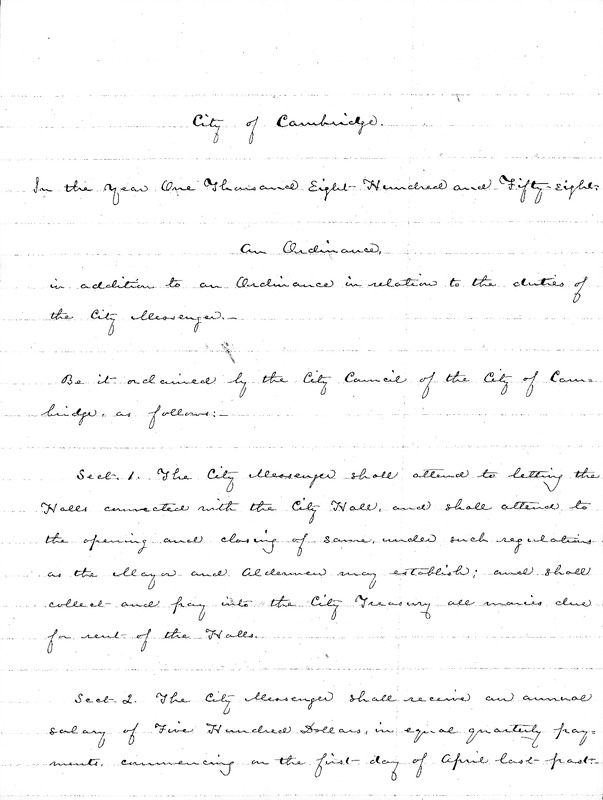 City of Cambridge.
In the Year One Thousand Eight Hundred and Fifty-eight.
An Ordinance,
in addition to an Ordinance in relation to the duties of
the City Messenger.—
Be it ordained by the City Council of the City of Cam=
bridge, as follows:—
Sect. 1. The City Messenger shall attend to letting the
Halls connected with the City Hall, and shall attend to
the opening and closing of same, under such regulations
as the Mayor and Aldermen may establish; and shall
collect and pay into the City Treasury all monies due
for rent of the Halls.
Sect. 2. The City Messenger shall receive an annual
salary of Five Hundred Dollars, in equal quarterly pay=
ments, commencing on the first day of April last past.